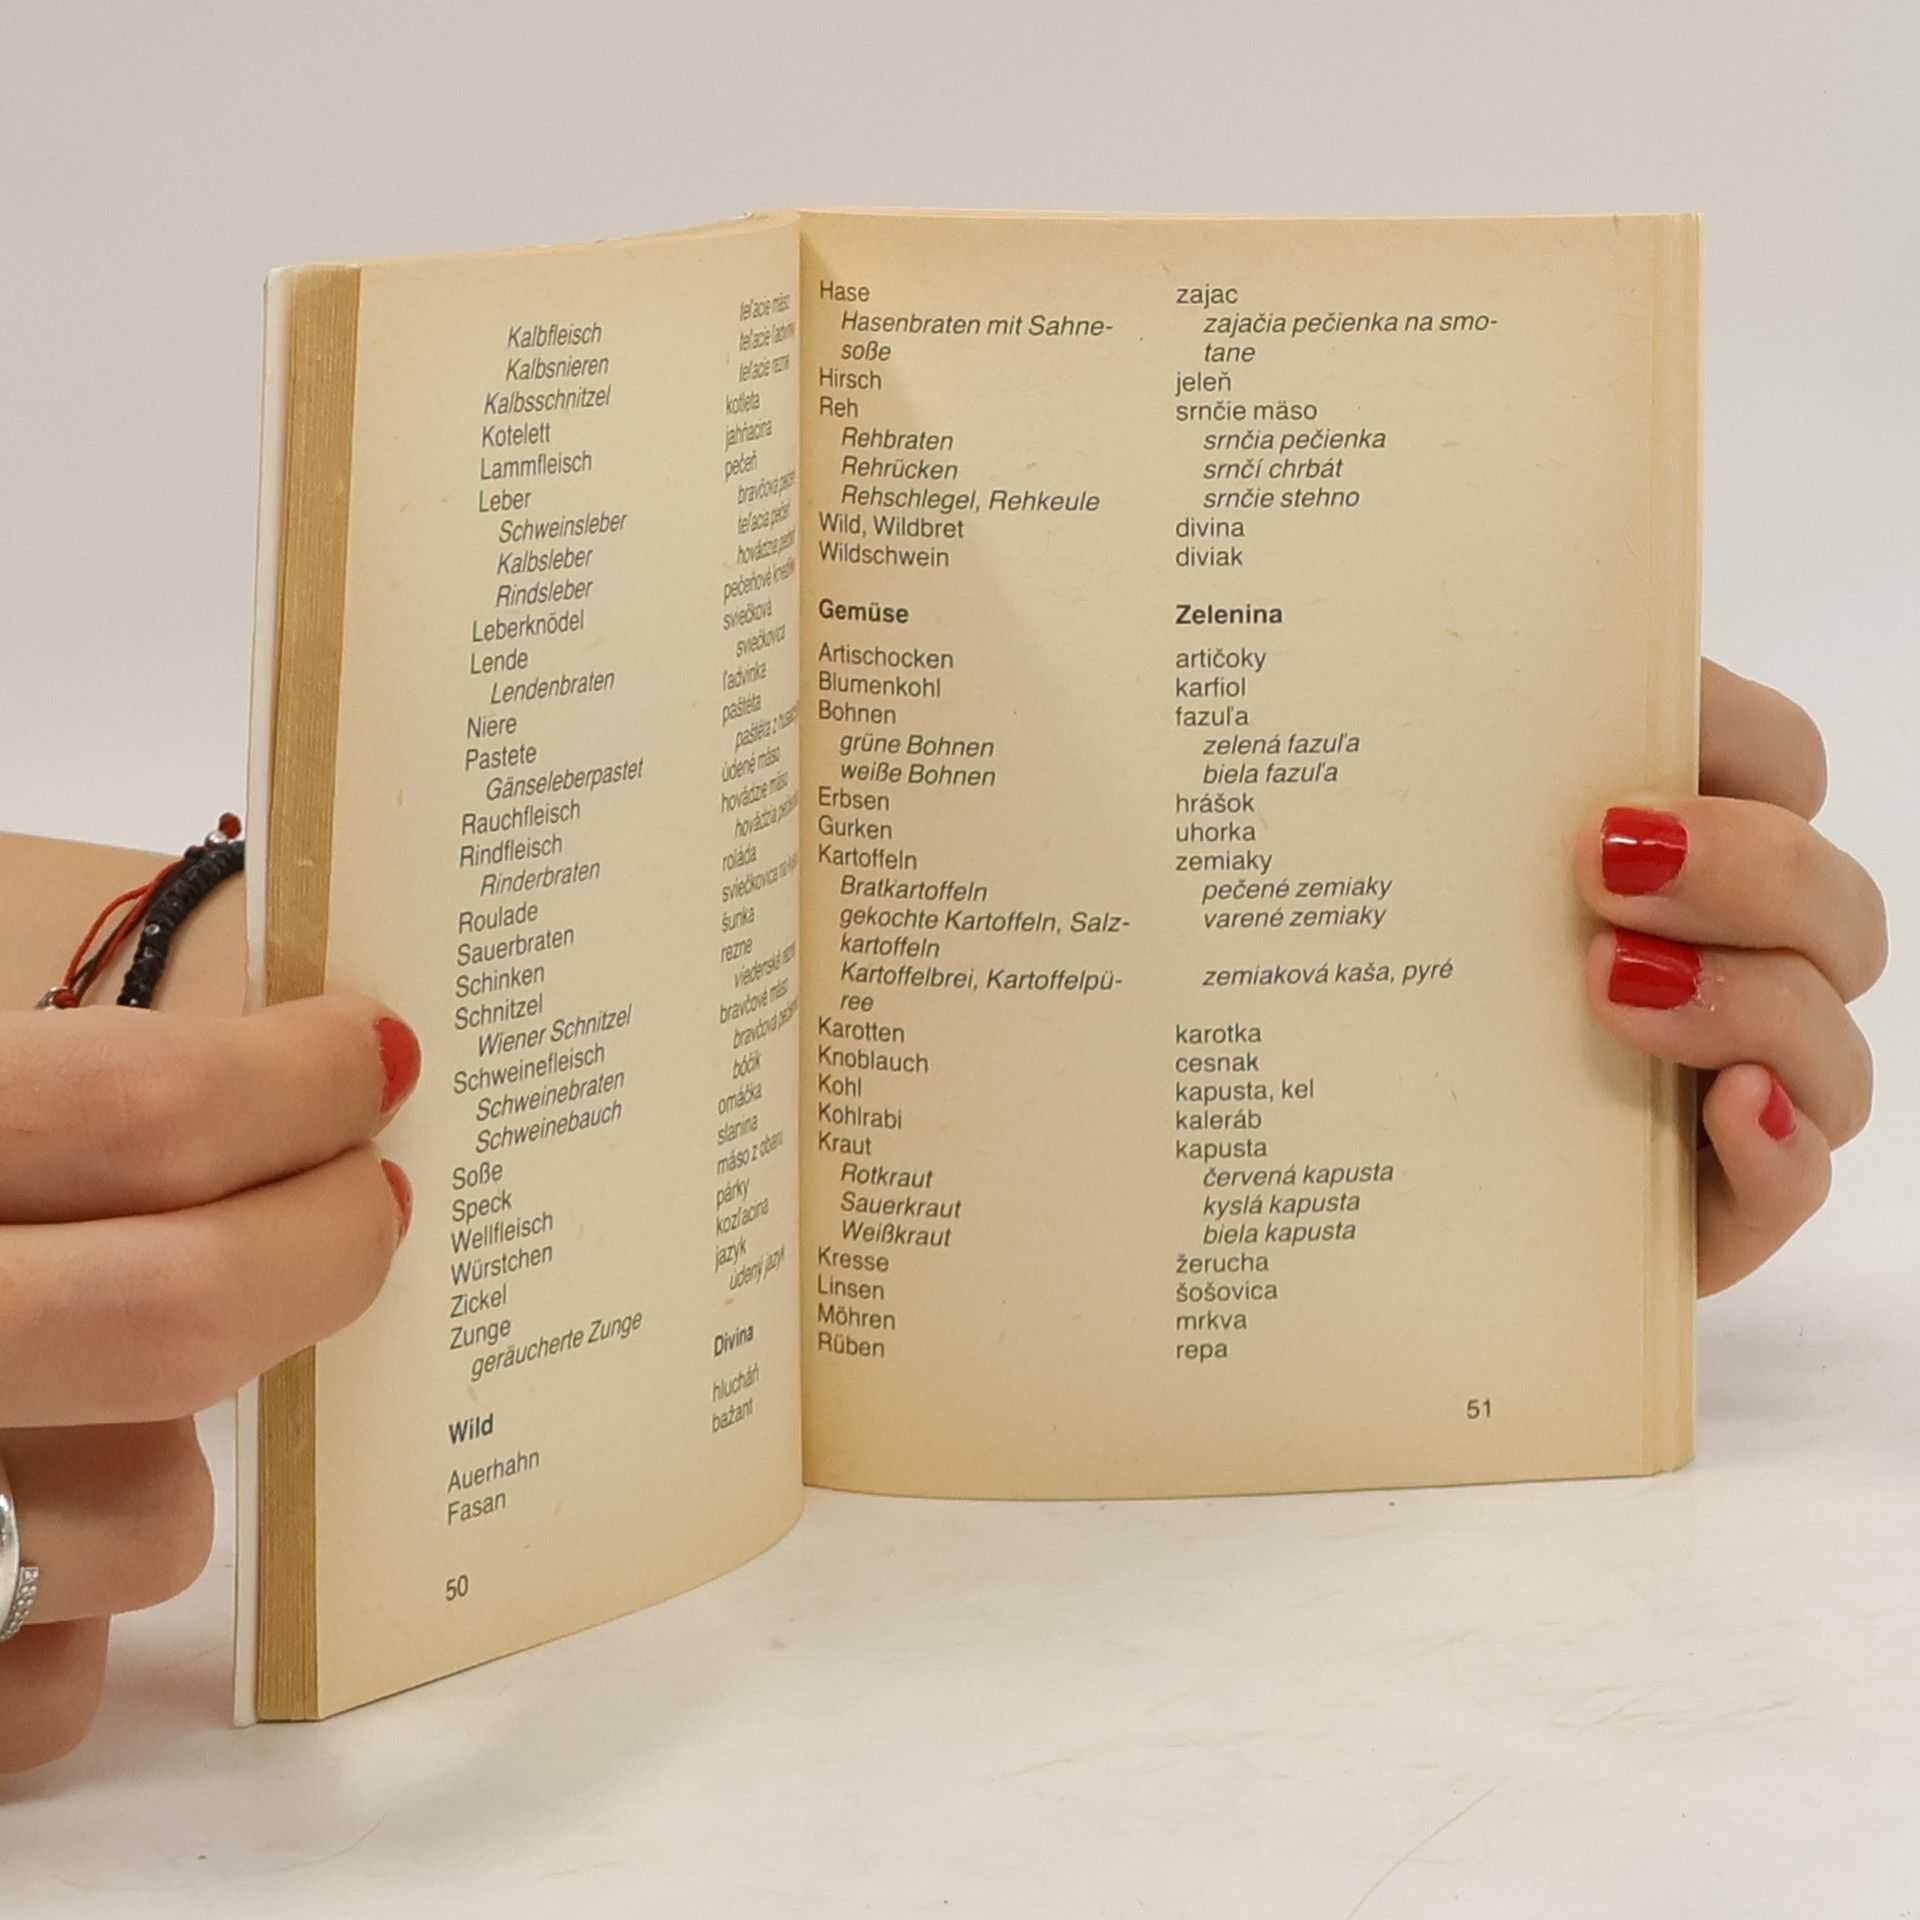 Kalbfleisch teľacie mäso
Kalbsnieren teľacie ľadvinky
Kalbsschnitzel teľacie rezne
Kotelett kotleta
Lammfleisch jahňacina
Leber pečeň
Schweinsleber bravčová pečeň
Kalbsleber teľacia pečeň
Rindsleber hovädzia pečeň
Leberknödel pečeňové
Lende sviečková
Lendenbraten
Niere ľadvinka
Pastete paštéta
Gänseleberpastet paštéta z
Rauchfleisch údené mäso
Rindfleisch hovädzie mäso
Rinderbraten hovädzia
Roulade roláda
Sauerbraten sviečkovica na
Schinken šunka
Schnitzel rezne
Wiener Schnitzel viedenské
Schweinefleisch bravčové mäso
Schweinebraten bravčová
Schweinebauch bôčik
Soße omáčka
Speck slanina
Wellfleisch mäso z obaru
Würstchen párky
Zickel kozľacina
Zunge jazyk
geräucherte Zunge údený jazyk
Wild Divina
Auerhahn hlucháň
Fasan bažant
50
Hase zajac
Hasenbraten mit Sahne- zajačia pečienka na smo-
soße tane
Hirsch jeleň
Reh srnčie mäso
Rehbraten srnčia pečienka
Rehrücken srnčí chrbát
Rehschlegel, Rehkeule srnčie stehno
Wild, Wildbret divina
Wildschwein diviak
Gemüse Zelenina
Artischocken artičoky
Blumenkohl karfiol
Bohnen fazuľa
grüne Bohnen zelená fazuľa
weiße Bohnen biela fazuľa
Erbsen hrášok
Gurken uhorka
Kartoffeln zemiaky
Bratkartoffeln pečené zemiaky
gekochte Kartoffeln, Salz- varené zemiaky
kartoffeln
Kartoffelbrei, Kartoffelpü- zemiaková kaša, pyré
ree
Karotten karotka
Knoblauch cesnak
Kohl kapusta, kel
Kohlrabi kaleráb
Kraut kapusta
Rotkraut červená kapusta
Sauerkraut kyslá kapusta
Weißkraut biela kapusta
Kresse žerucha
Linsen šošovica
Möhren mrkva
Rüben repa
51